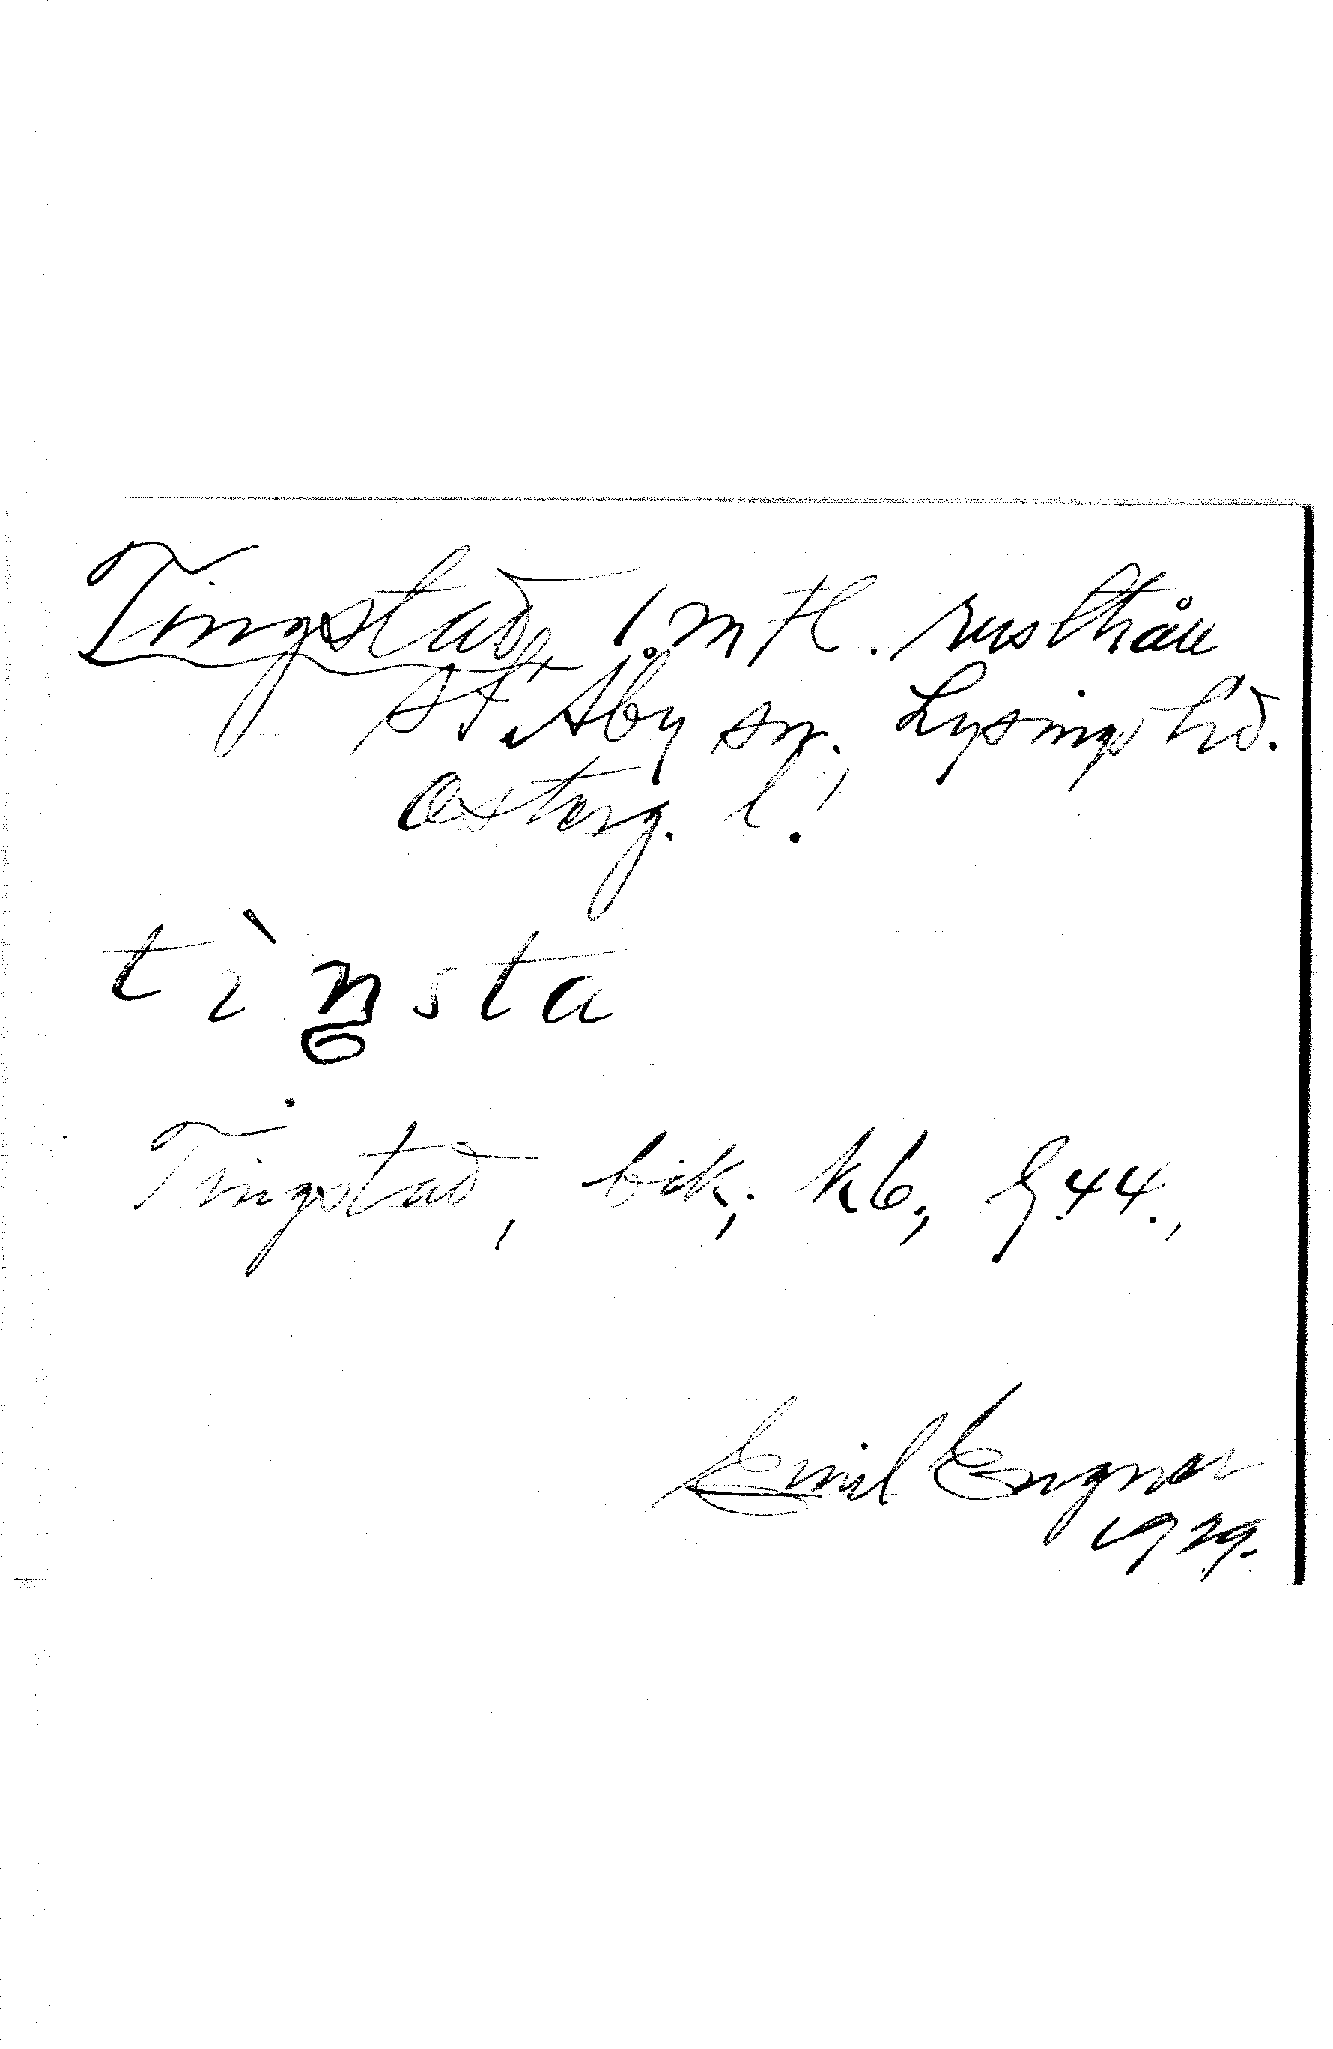 Tingstad, 1 mtl. rusthåll
St. Åby sn., Lysings hd.
Österg. l.
tìŋsta
Tingstad, bik; kb., G 44.,
Emil Engner
1929.